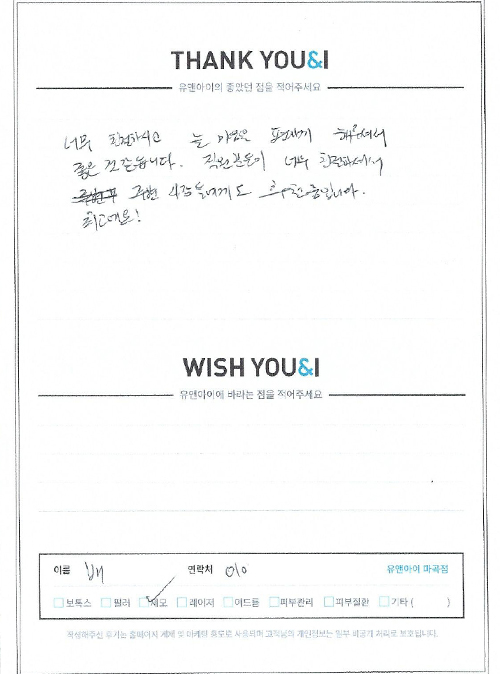 THANK YOU&I
유앤아이의 좋았던 점을 적어주세요
너무 친절하시고 늘 마음을 편하게 해주셔서
좋은 것 같습니다. 직원분들이 너무 친절하셔서
주변 사람들에게도 추천중입니다.
최고예요!
WISH YOU&I
유앤아이에 바라는 점을 적어주세요
이름 배 연락처 010 유앤아이 마곡점
보톡스 필러 제모 레이저 여드름 피부관리 피부질환 기타 ( )
작성해주신 후기는 홈페이지 게재 및 마케팅 용도로 사용되며 고객님의 개인정보는 일부 비공개 처리로 보호됩니다.